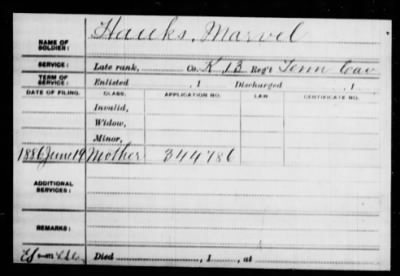 NAME OF SOLDIER: Hawks, Marvel
SERVICE: Late rank, Co. K 13 Reg't Tenn Cav
TERM OF SERVICE: Enlisted , 1 Discharged , 1
DATE OF FILING. CLASS. APPLICATION NO. LAW. CERTIFICATE NO.
Invalid,
Widow,
Minor,
1886 June 19 Mother 344786
ADDITIONAL SERVICES:
REMARKS:
Died , 1 , at